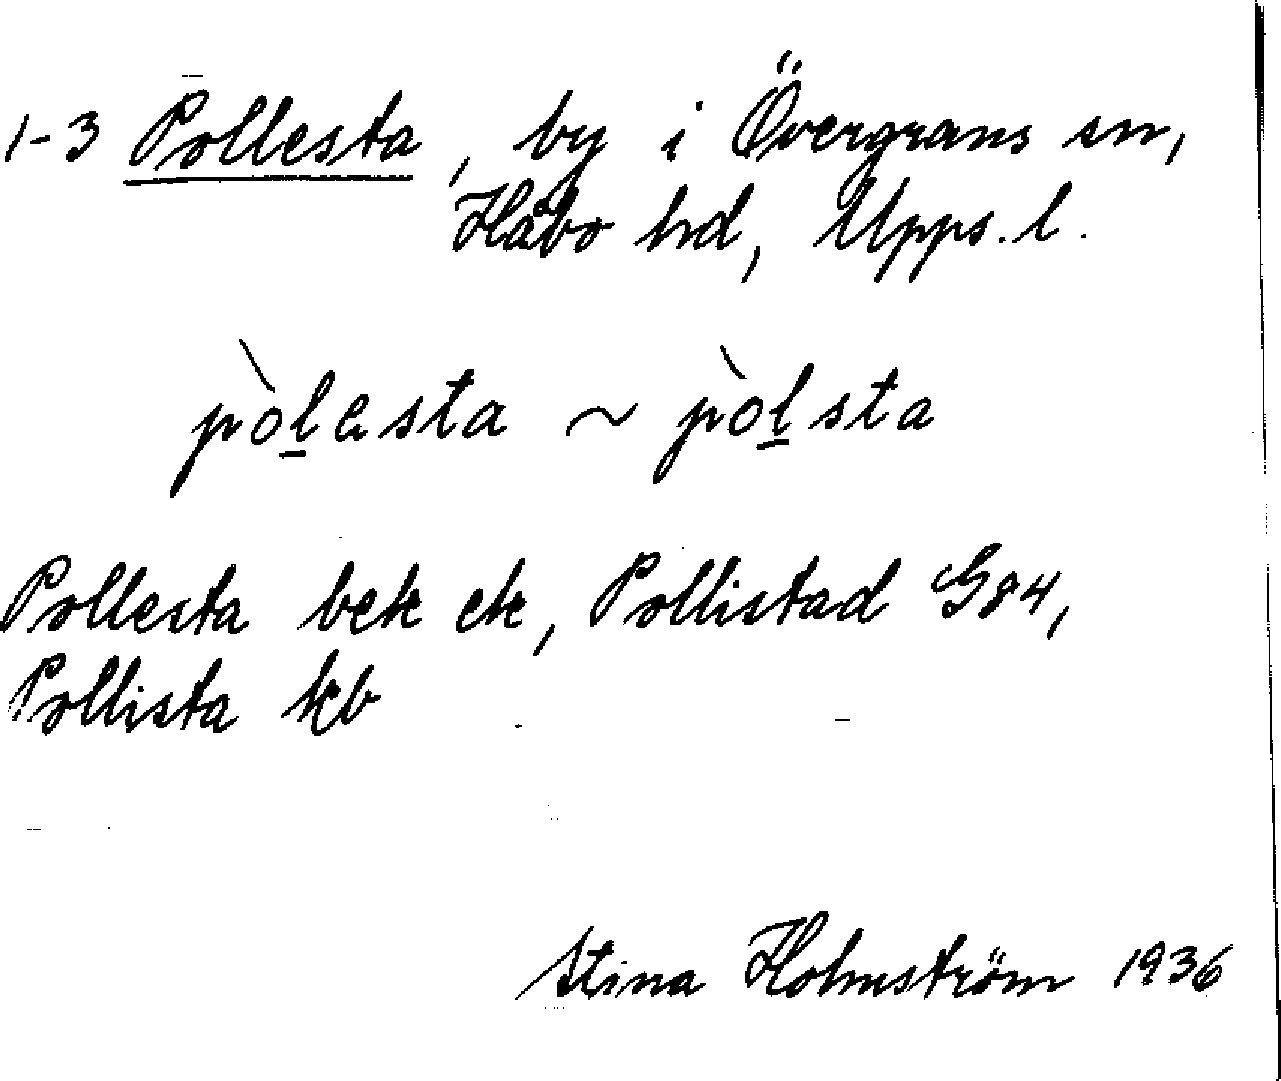 1-3 Pollesta, by i Övergrans sn,
Håbo hd, Upps. l.
pòl̠esta ~ pòl̠sta
Pollesta bek ek, Pollistad G84,
Pollista kb
Stina Holmström 1936